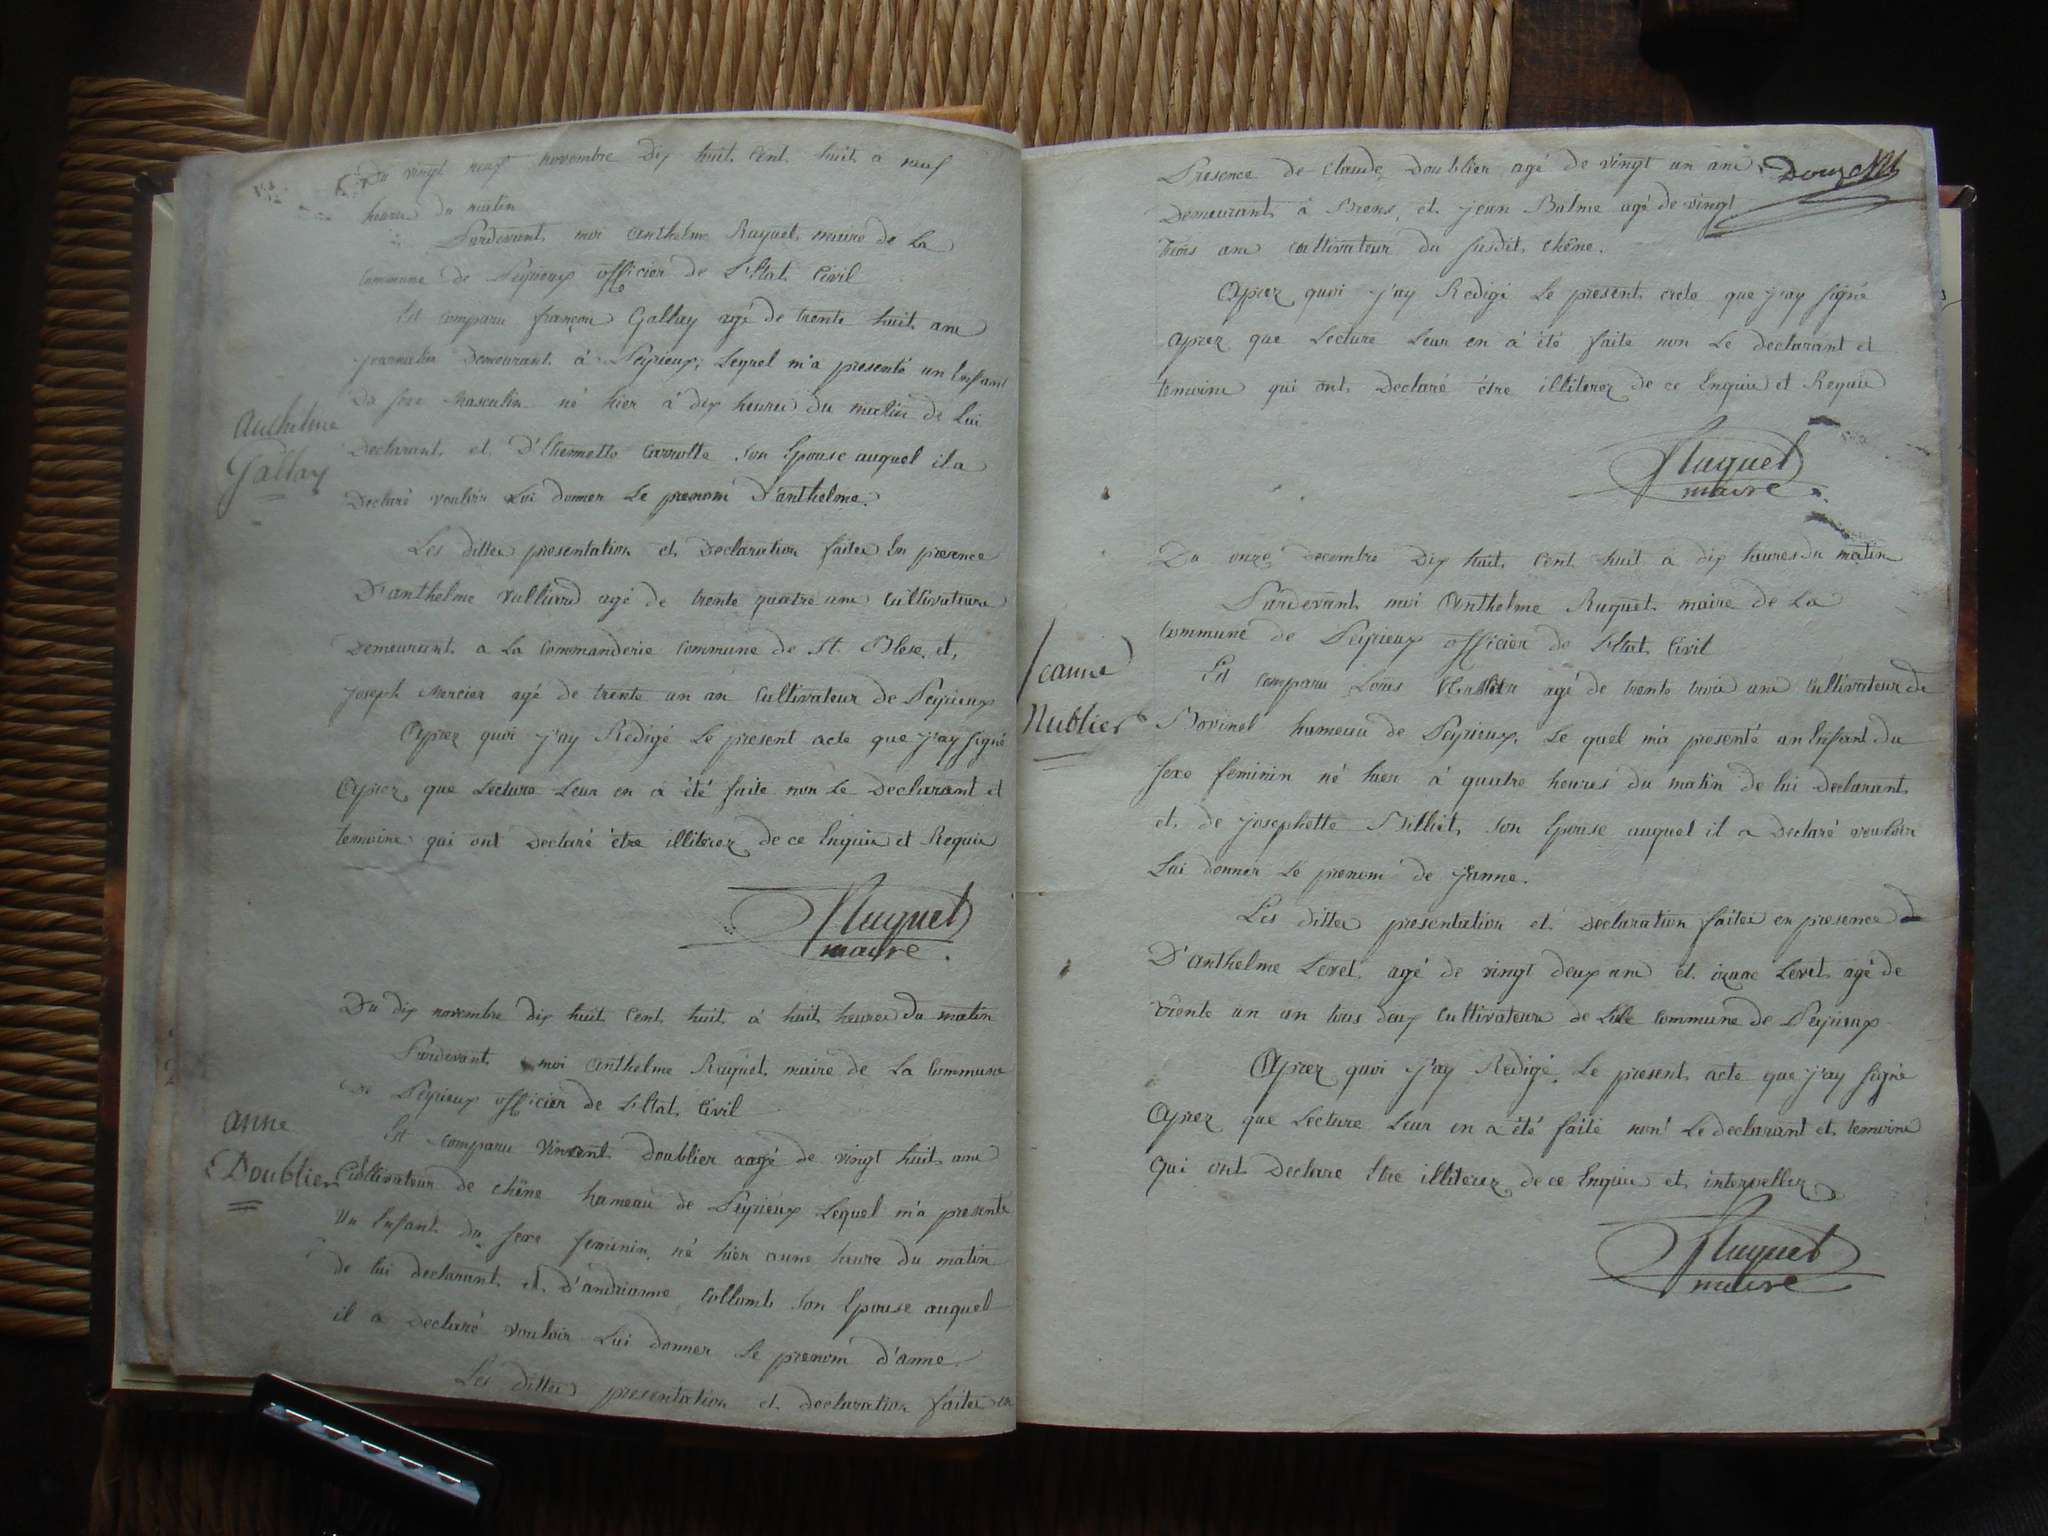 Du vingt neuf novembre dix huit cent huit a neuf
heures du matin
Pardevant moi anthelme Ruquet maire de La
Commune de Peyrieux officier de L'Etat Civil
Est comparu françois Gallay agé de trente huit ans
journalier Demeurant à Peyrieux, Lequel m'a presenté un Enfant
Du sexe Masculin né hier à dix heures du matin de Lui
Anthelme
Gallay
Declarant et D'Etiennette son Epouse auquel il a
Declaré vouloir Lui donner Le prenom D'anthelme.
Les dittes presentation et Declaration faites En presence
D'anthelme Vulliard agé de trente quatre ans Cultivateur
Demeurant a La Commanderie Commune de St. Blese, et
Joseph Mercier agé de trente un an Cultivateur de Peyrieux
Aprez quoi j'ay Redigé Le present acte que j'ay signé
Aprez que Lecture Leur en à été faite non Le Declarant et
temoins qui ont Declaré être illiterez de ce Enquis et Requis
Ruquet
maire.
Du dix novembre dix huit Cent huit à huit heures du matin
Pardevant moi Anthelme Ruquet maire de La Commune
De Peyrieux officier de L'Etat Civil
Est comparu Vincent Doublier agé de vingt huit ans
anne
Doublier
Cultivateur de Chêne hameau de Peyrieux Lequel m'a presenté
Un Enfant du sexe feminin né hier a une heure du matin
de lui declarant et d'andrianne Collomb son Epouse auquel
il a Declaré vouloir Lui donner Le prenom d'anne.
Les dittes presentation et declaration faites en
Presence de Claude Doublier agé de vingt un ans
Demeurant à Brens, et jean Balme agé de vingt
trois ans Cultivateur du susdit Chêne.
Aprez quoi j'ay Redigé Le present acte que j'ay signé
aprez que Lecture Leur en à été faite non Le declarant et
temoins qui ont Declaré être illiterez de ce Enquis et Requis
Ruquet
maire
Du onze Decembre Dix huit Cent huit a dix heures du matin
Pardevant moi Anthelme Ruquet maire de La
Commune de Peyrieux officier de L'Etat Civil
Jeanne
Nublier
Est comparu Louis agé de trente trois ans Cultivateur de
Bovinel hameau de Peyrieux, Le quel m'a presenté un Enfant du
sexe feminin né hier à quatre heures du matin de lui declarant
et de Josephette Billiet son Epouse auquel il a Declaré vouloir
Lui donner Le prenom de Janne.
Les dittes presentation et Declaration faites en presence d
D'anthelme Levet agé de vingt deux ans et izaac Levet agé de
trente un an tous deux Cultivateurs de Lisle Commune de Peyrieux
Aprez quoi j'ay Redigé Le present acte que j'ay signé
Aprez que Lecture Leur en a été faite non Le declarant et temoins
qui ont Declare Etre illiterez de ce Enquis et interpellez
Ruquet
maire